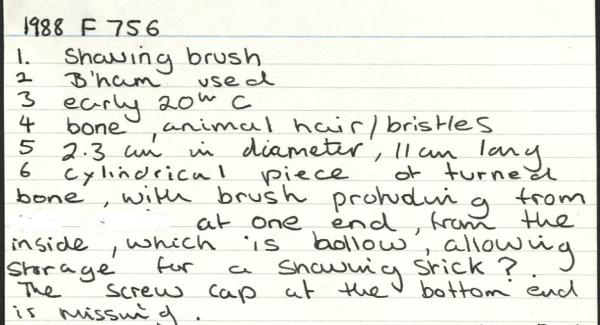 1988 F 756
1. Shaving brush
2 B'ham used
3 early 20th C
4 bone, animal hair/bristles
5 2.3 cm in diameter, 11 cm long
6 cylindrical piece of turned
bone, with brush protruding from
at one end, from the
inside, which is hollow, allowing
storage for a shaving stick?.
The screw cap at the bottom end
is missing.